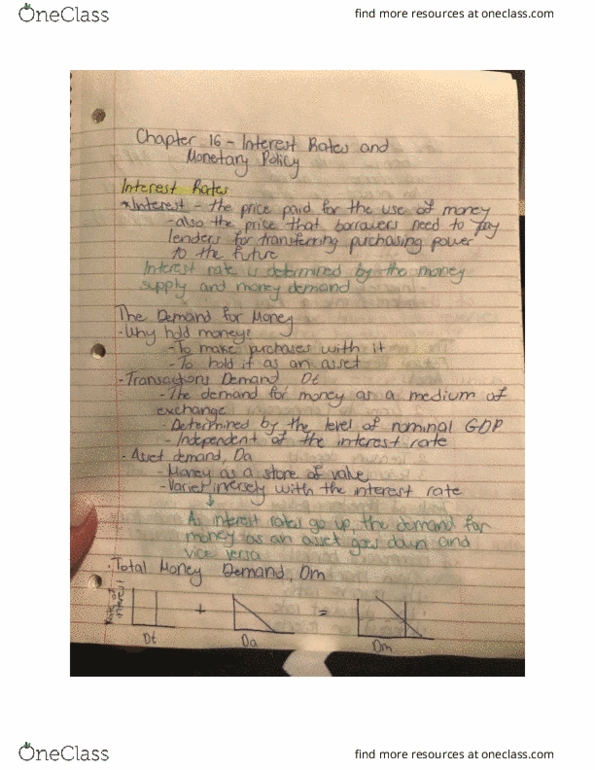 OneClass
find more resources at oneclass.com
Chapter 16 - Interest Rates and
Monetary Policy
Interest Rates
*Interest - the price paid for the use of money
- also the price that borrowers need to pay
lenders for transferring purchasing power
to the future
Interest rate is determined by the money
supply and money demand
The Demand for Money
- Why hold money?
- To make purchases with it
- To hold it as an asset
- Transactions Demand Dt
- The demand for money as a medium of
exchange
- Determined by the level of nominal GDP
- Independent of the interest rate
- Asset demand, Da
- Money as a store of value
- Varies inversely with the interest rate
↓
As interest rates go up, the demand for
money as an asset goes down and
vice versa
· Total Money Demand, Dm
Rate of
interest
+ =
Dt Da Dm
OneClass
find more resources at oneclass.com